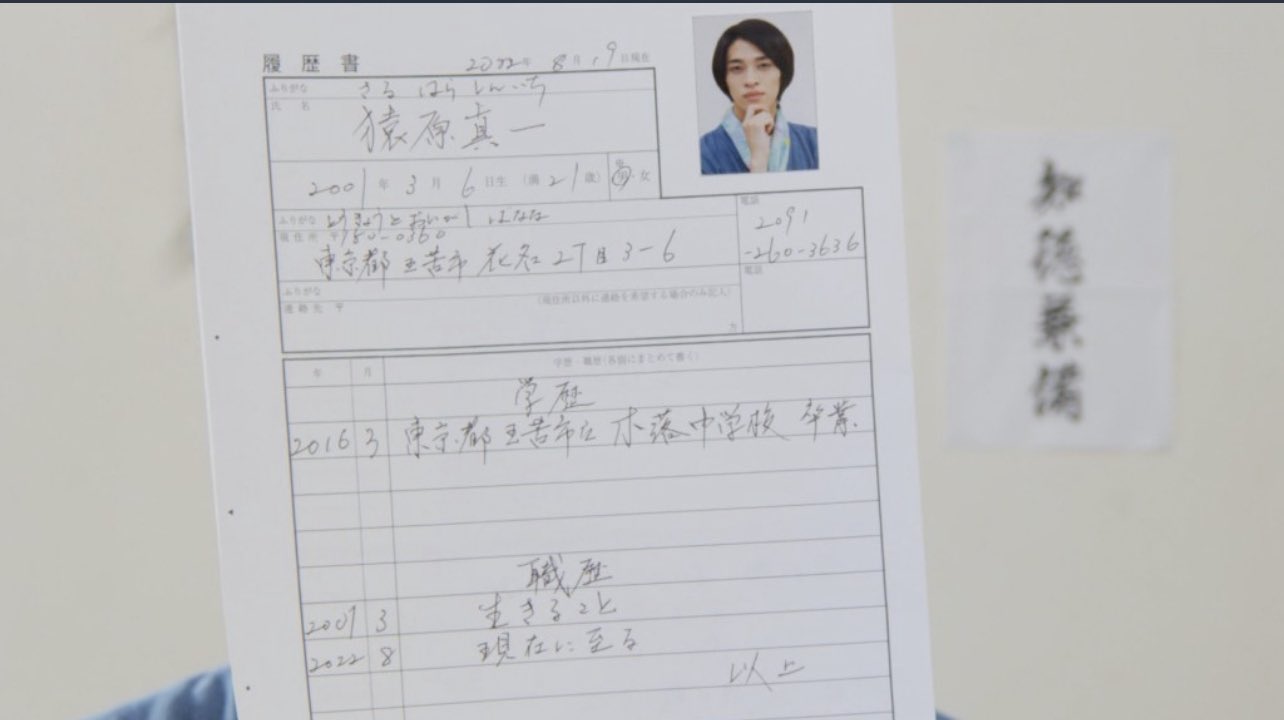 履歴書 2022年 8月19日現在
ふりがな さるはらしんいち
氏名 猿原真一
2001年 3月 6日生 (満21歳) 男・女
ふりがな とうきょうと おいがし はなな
現住所 〒180-0360
東京都 王苦市 花名 2丁目3-6
電話 2091
-260-3636
ふりがな
電話
連絡先 〒 (現住所以外に連絡を希望する場合のみ記入)
方
年 月 学歴・職歴(各別にまとめて書く)
学歴
2016 3 東京都王苦市立 木落中学校 卒業
職歴
2001 3 生きること
2022 8 現在に至る
以上
知徳兼備